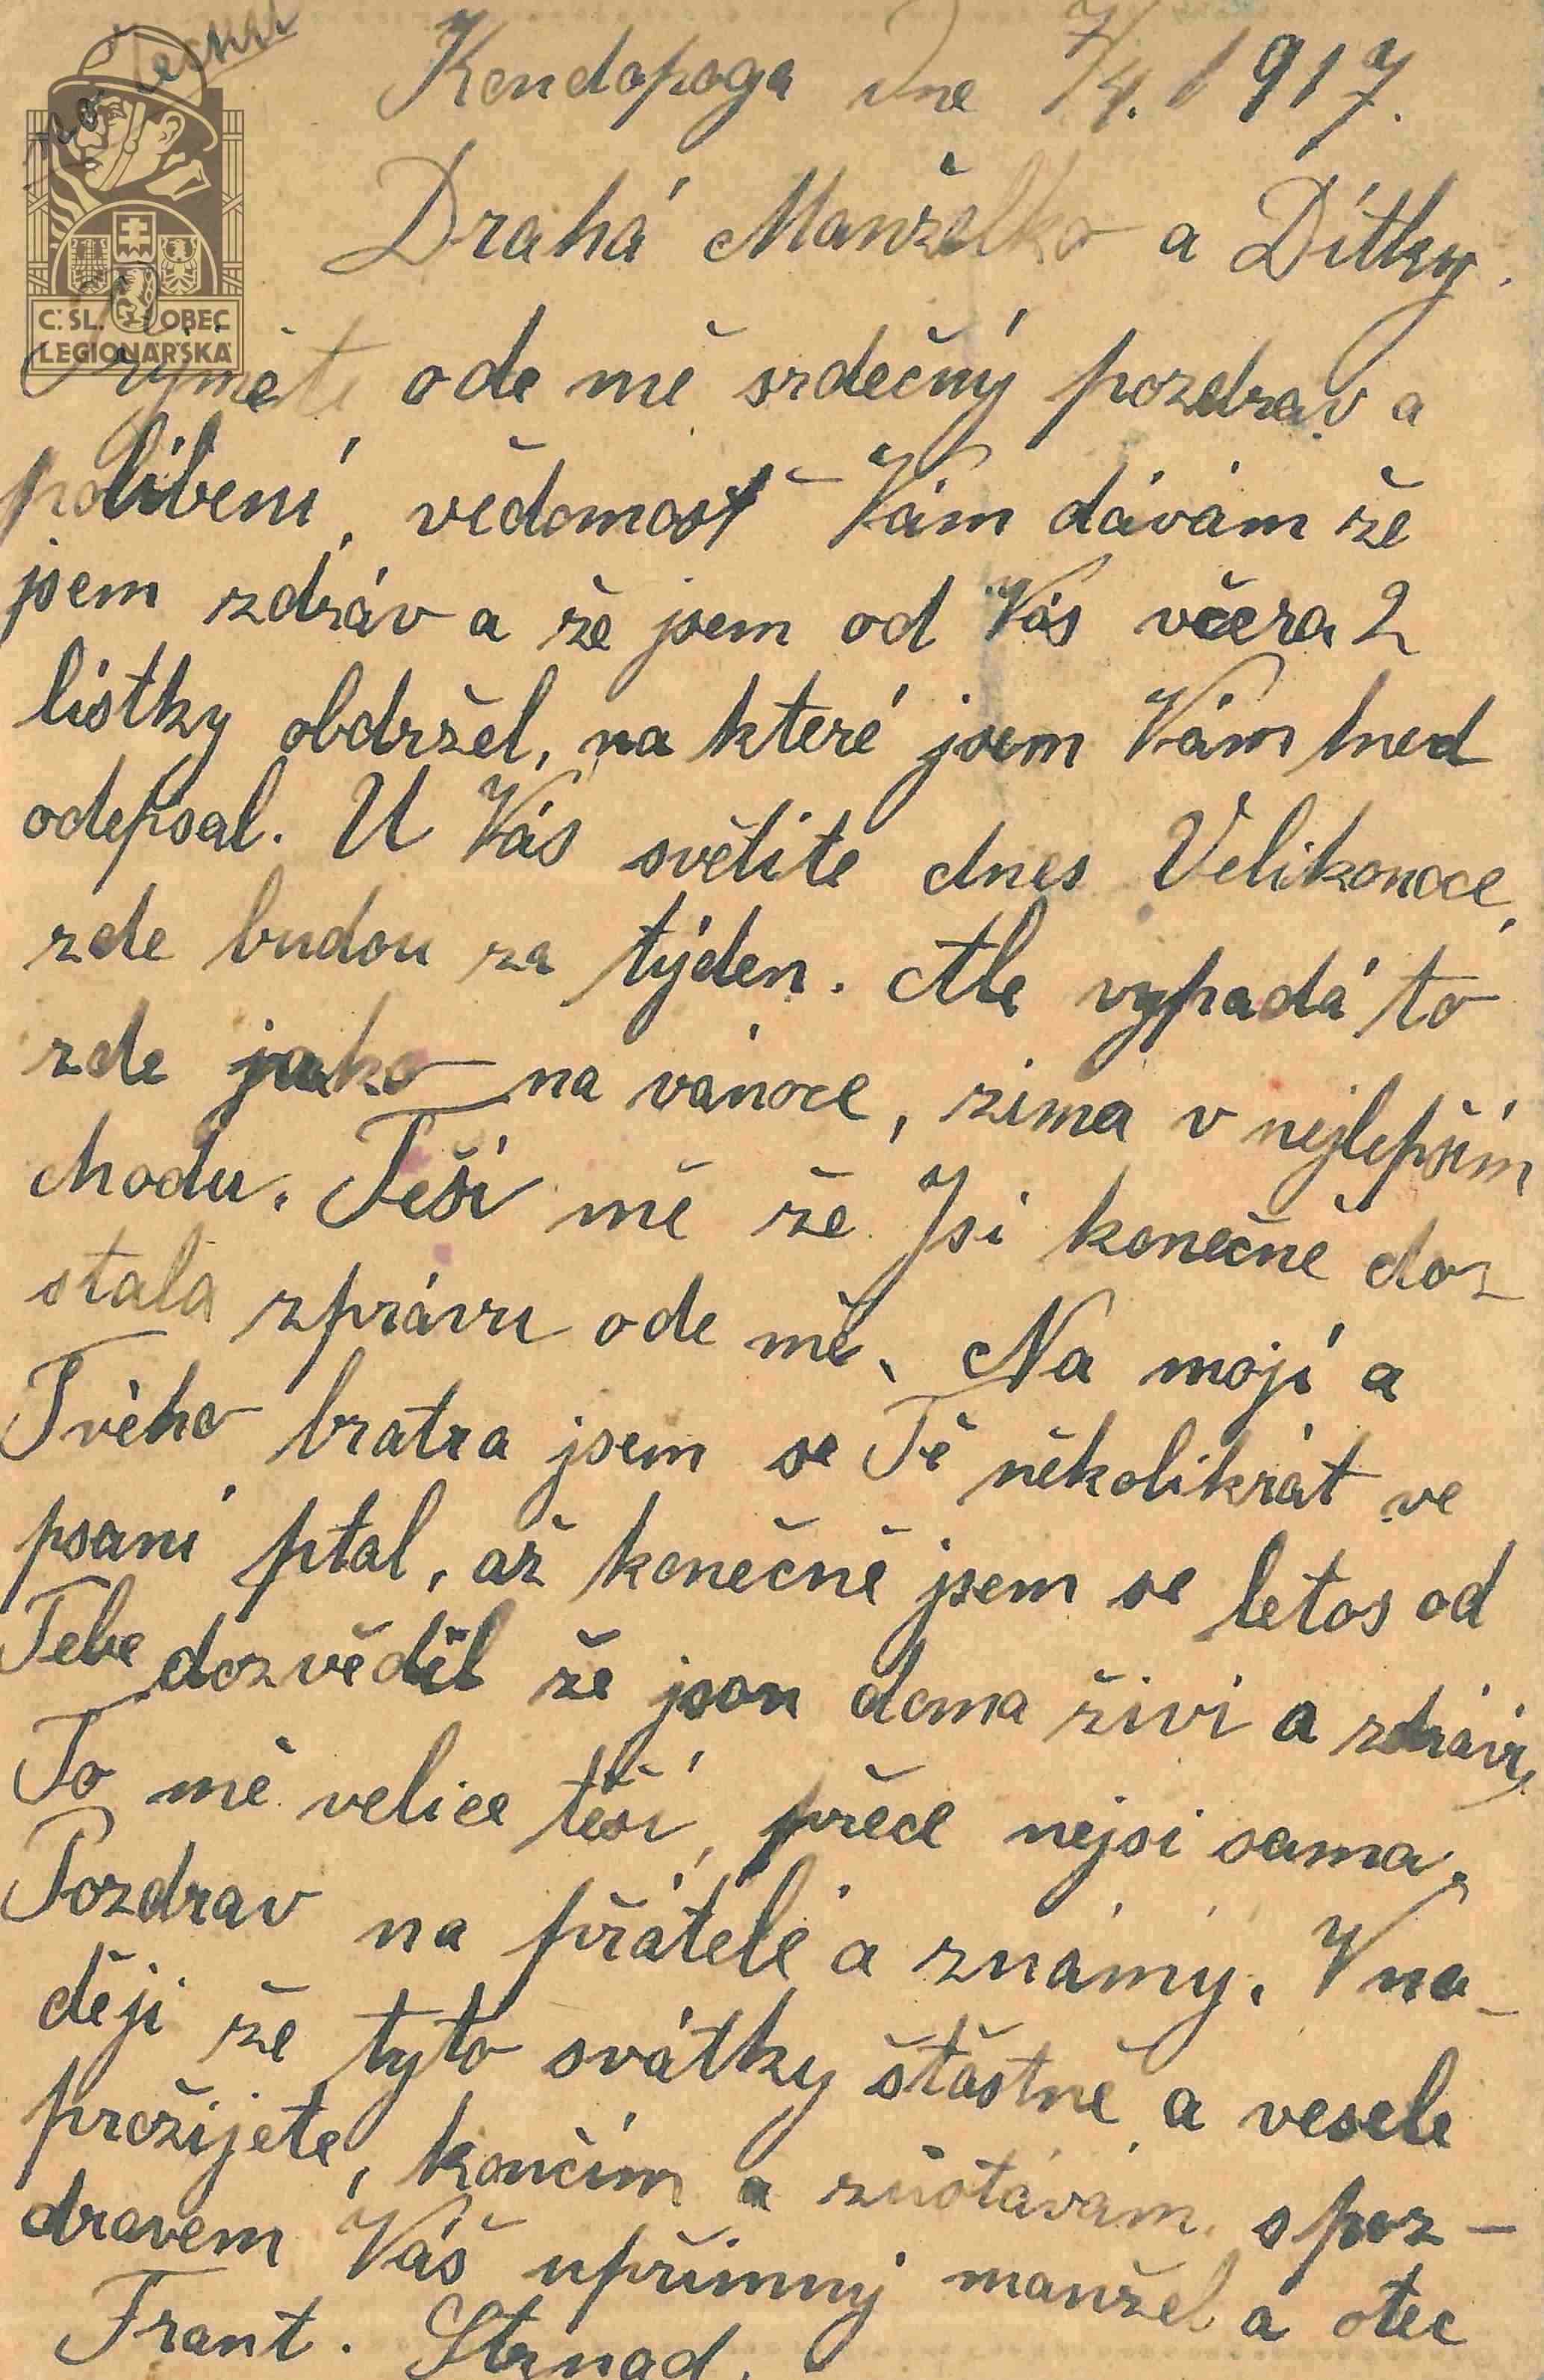 Kendopoga dne 7/4. 1917.
Drahá Manželko a Dítky.
Č. SL. OBEC
LEGIONÁŘSKÁ
Přijměte ode mě srdečný pozdrav a
políbení, vědomosť Vám dávám že
jsem zdráv a že jsem od Vás včera 2
lístky obdržel, na které jsem Vám hned
odepsal. U Vás světíte dnes Velikonoce,
zde budou za týden. Ale vypadá to
zde jako na vánoce, zima v nejlepším
chodu. Těší mě že Jsi konečně do-
stala zprávu ode mě. Na mojí a
Tvého bratra jsem se Tě několikrát ve
psaní ptal, až konečně jsem se letos od
Tebe dozvěděl že jsou doma živi a zdrávi,
To mě velice těší, přece nejsi sama.
Pozdrav na přátelé a známý. V na-
ději že tyto svátky šťastně a vesele
prožijete, končím a zůstávám s poz-
dravem Váš upřímný manžel a otec
Frant. Strnad.